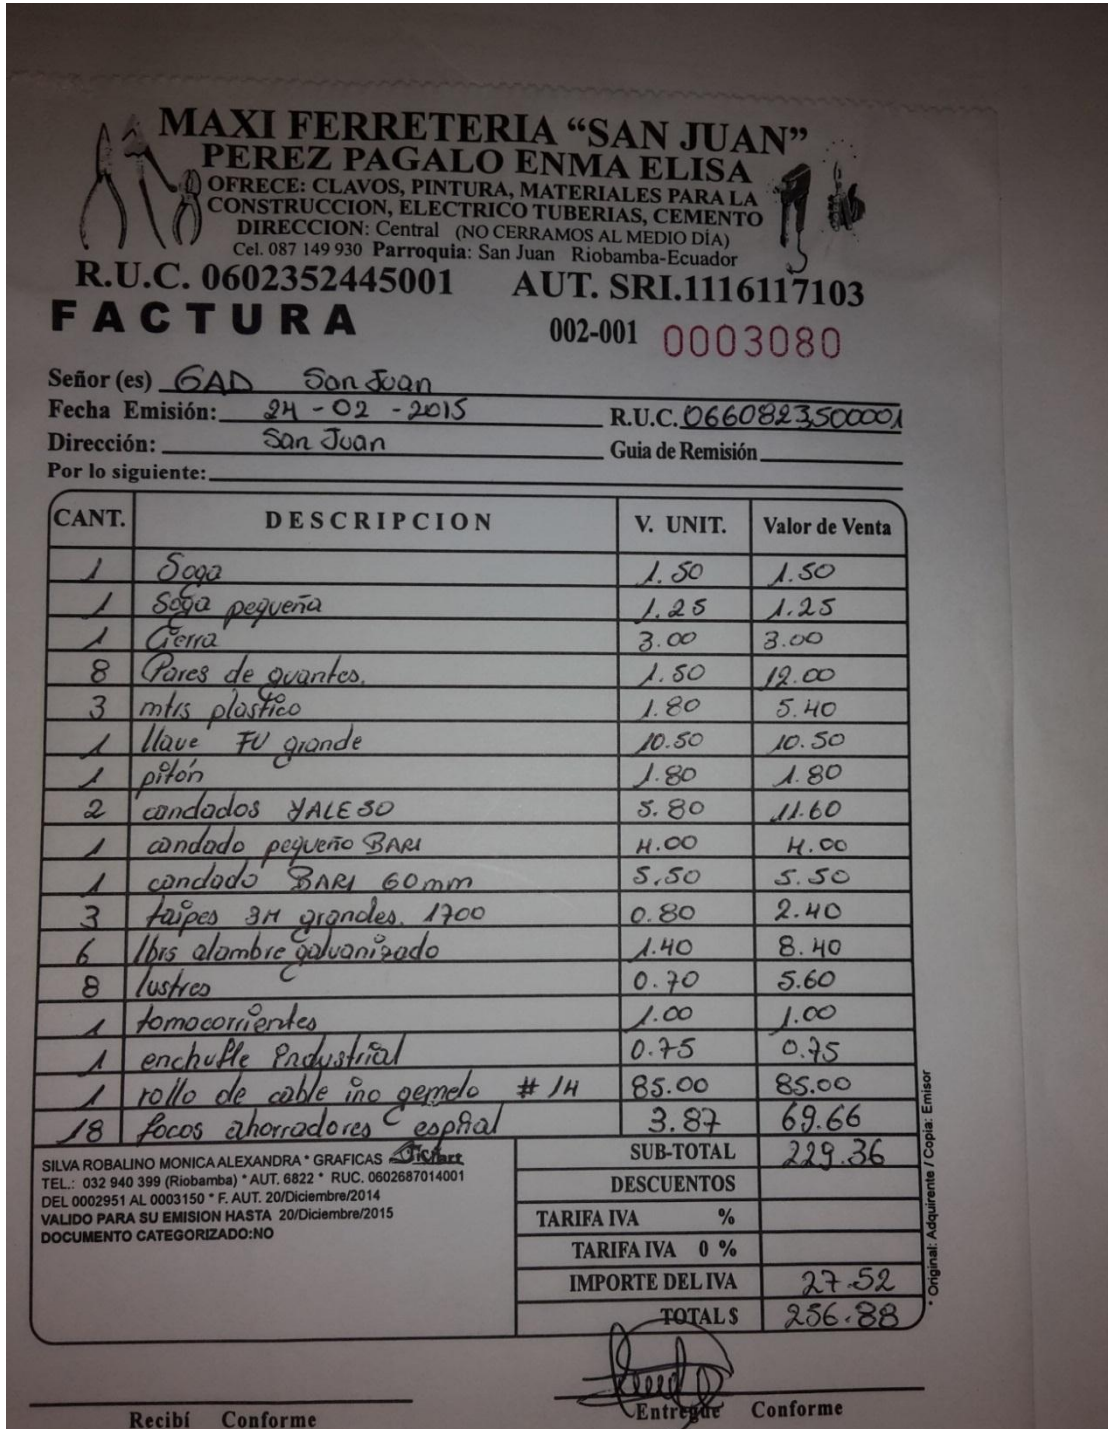 MAXI FERRETERIA “SAN JUAN”
PEREZ PAGALO ENMA ELISA
OFRECE: CLAVOS, PINTURA, MATERIALES PARA LA
CONSTRUCCION, ELECTRICO TUBERIAS, CEMENTO
DIRECCION: Central (NO CERRAMOS AL MEDIO DÍA)
Cel. 087 149 930 Parroquia: San Juan Riobamba-Ecuador
R.U.C. 0602352445001 AUT. SRI.1116117103
FACTURA 002-001 0003080
Señor (es) GAD San Juan
Fecha Emisión: 24-02-2015 R.U.C. 0660823500001
Dirección: San Juan Guia de Remisión
Por lo siguiente:
CANT. DESCRIPCION V. UNIT. Valor de Venta
1 Soga 1.50 1.50
1 Soga pequeña 1.25 1.25
1 Cierra 3.00 3.00
8 Pares de guantes. 1.50 12.00
3 mtrs plastico 1.80 5.40
1 llave FV grande 10.50 10.50
1 pitón 1.80 1.80
2 candados YALE 50 5.80 11.60
1 candado pequeño BARI 4.00 4.00
1 candado BARI 60mm 5.50 5.50
3 taipes 3M grandes. 1700 0.80 2.40
6 lbrs alambre galvanizado 1.40 8.40
8 lustres 0.70 5.60
1 tomocorrientes 1.00 1.00
1 enchufle industrial 0.75 0.75
1 rollo de cable ino gemelo # 14 85.00 85.00
18 focos ahorradores espiral 3.87 69.66
SILVA ROBALINO MONICA ALEXANDRA * GRAFICAS
TEL.: 032 940 399 (Riobamba) * AUT. 6822 * RUC. 0602687014001
DEL 0002951 AL 0003150 * F. AUT. 20/Diciembre/2014
VALIDO PARA SU EMISION HASTA 20/Diciembre/2015
DOCUMENTO CATEGORIZADO:NO
SUB-TOTAL 229.36
DESCUENTOS
TARIFA IVA %
TARIFA IVA 0 %
IMPORTE DEL IVA 27.52
TOTAL $ 256.88
* Original: Adquirente / Copia: Emisor
Recibí Conforme Entregué Conforme